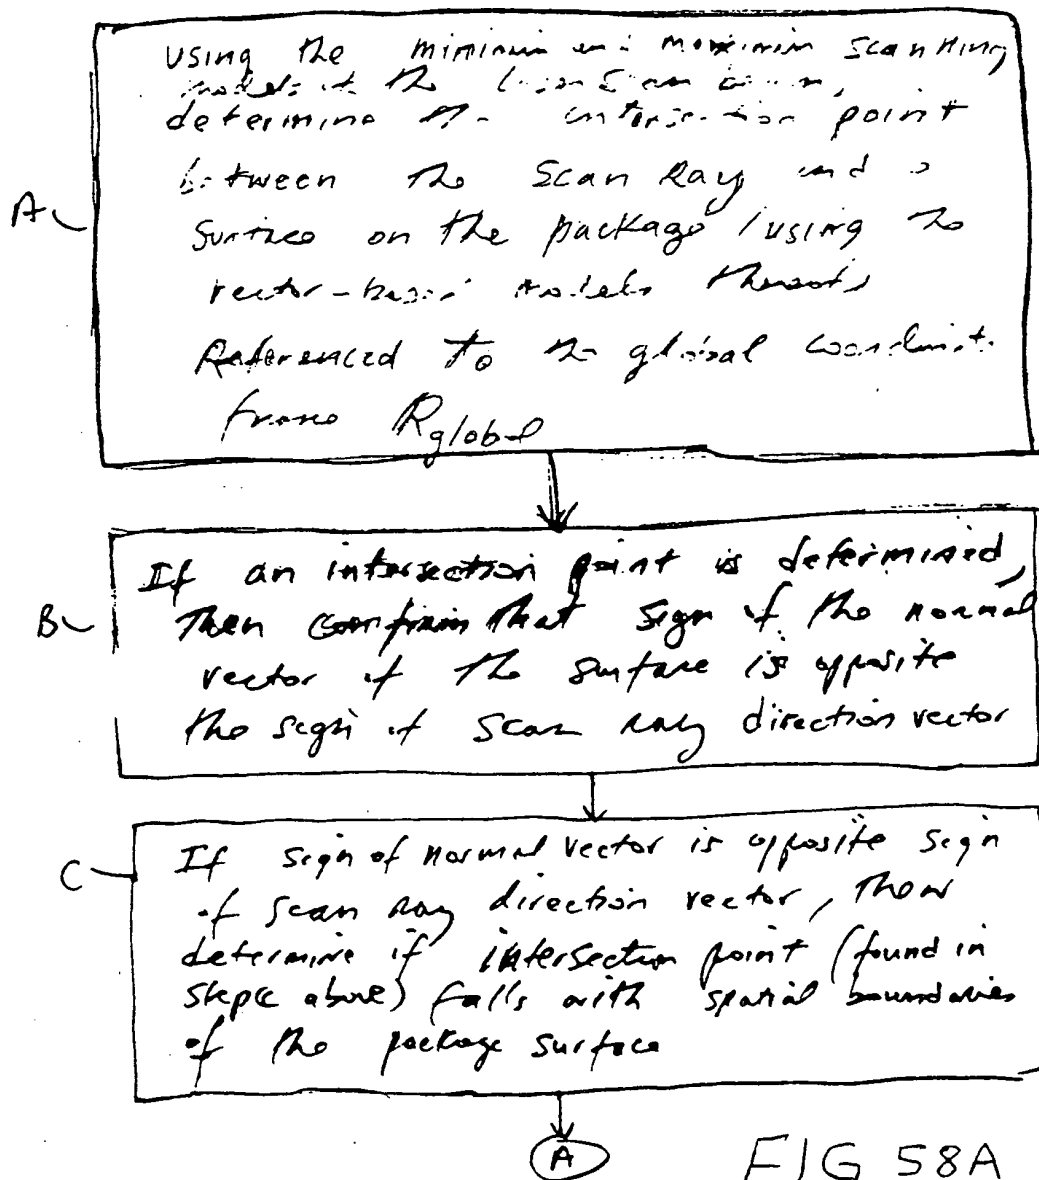 using the minimum and maximum scanning
models of the laser scan beam,
determine the intersection point
A
between the Scan Ray and a
Surface on the package (using the
vector-based models thereof)
Referenced to the global coordinate
frame Rglobal
If an intersection point is determined,
B
then confirm that sign of the normal
vector of the surface is opposite
the sign of scan ray direction vector
C
If sign of normal vector is opposite sign
of scan ray direction vector, then
determine if intersection point (found in
above) falls with spatial boundaries
of the package surface
A
FIG 58A